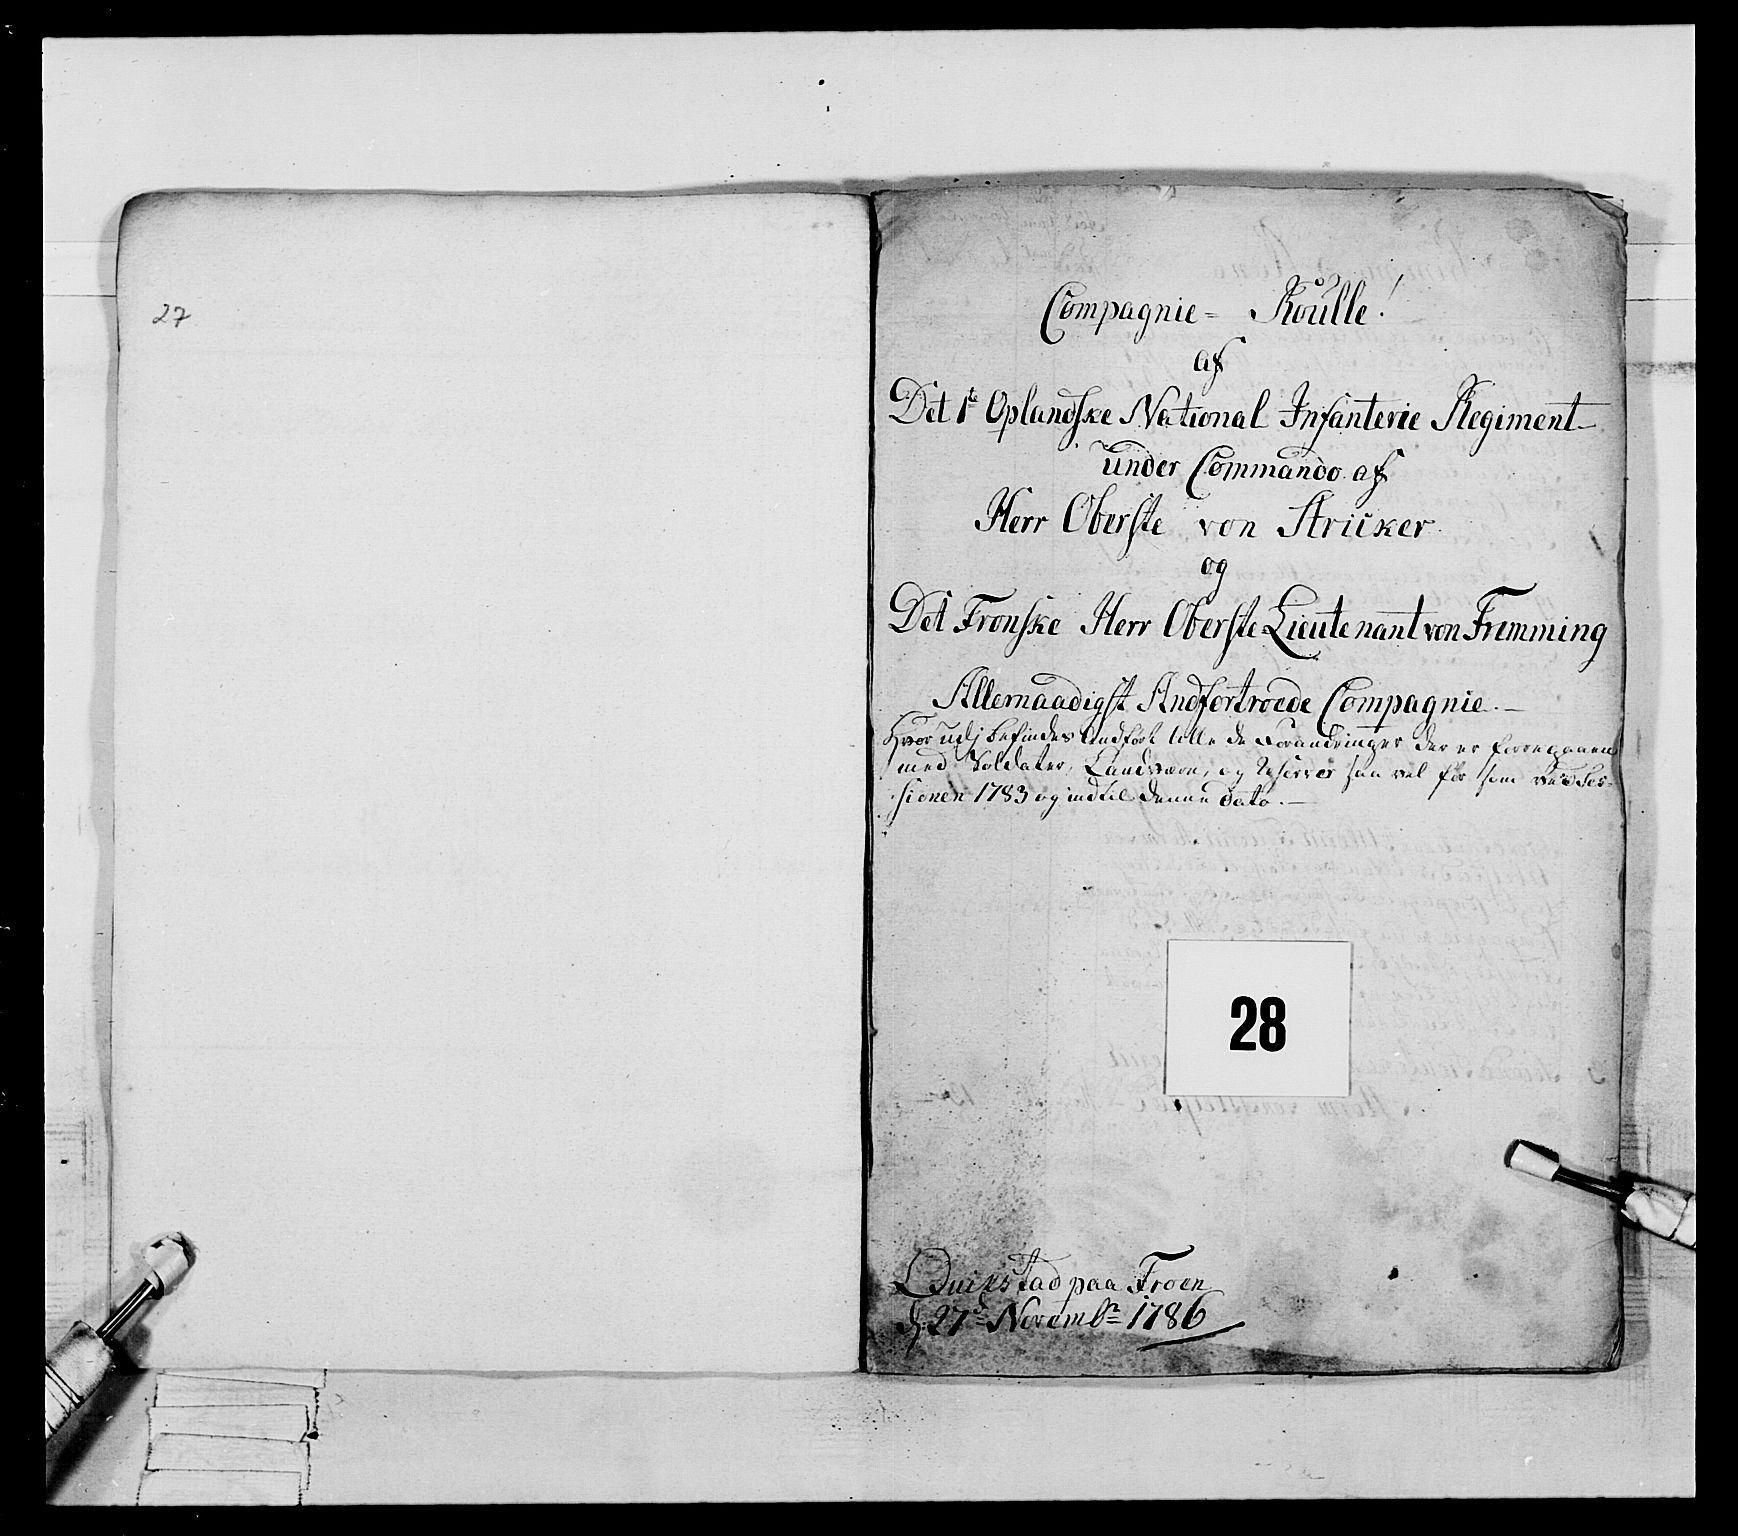 27
Compagnie= Roulle!
af
Det 1te Oplandske National Infanterie Regiment
under Commando af
Herr Oberste von Stricker
og
Det Fronske Herr Oberste Lieutenant von Fremming
Allernaadigst Andfortroede Compagnie.
Hvor udj befindes Andført alle de Forandringer der er forregaaen
med Soldater, Landværn, og Reserver saa vel før som ved Ses-
sionen 1783 og indtil denne dato.
28
Quikstad paa Froen
d. 27de Novembr 1786